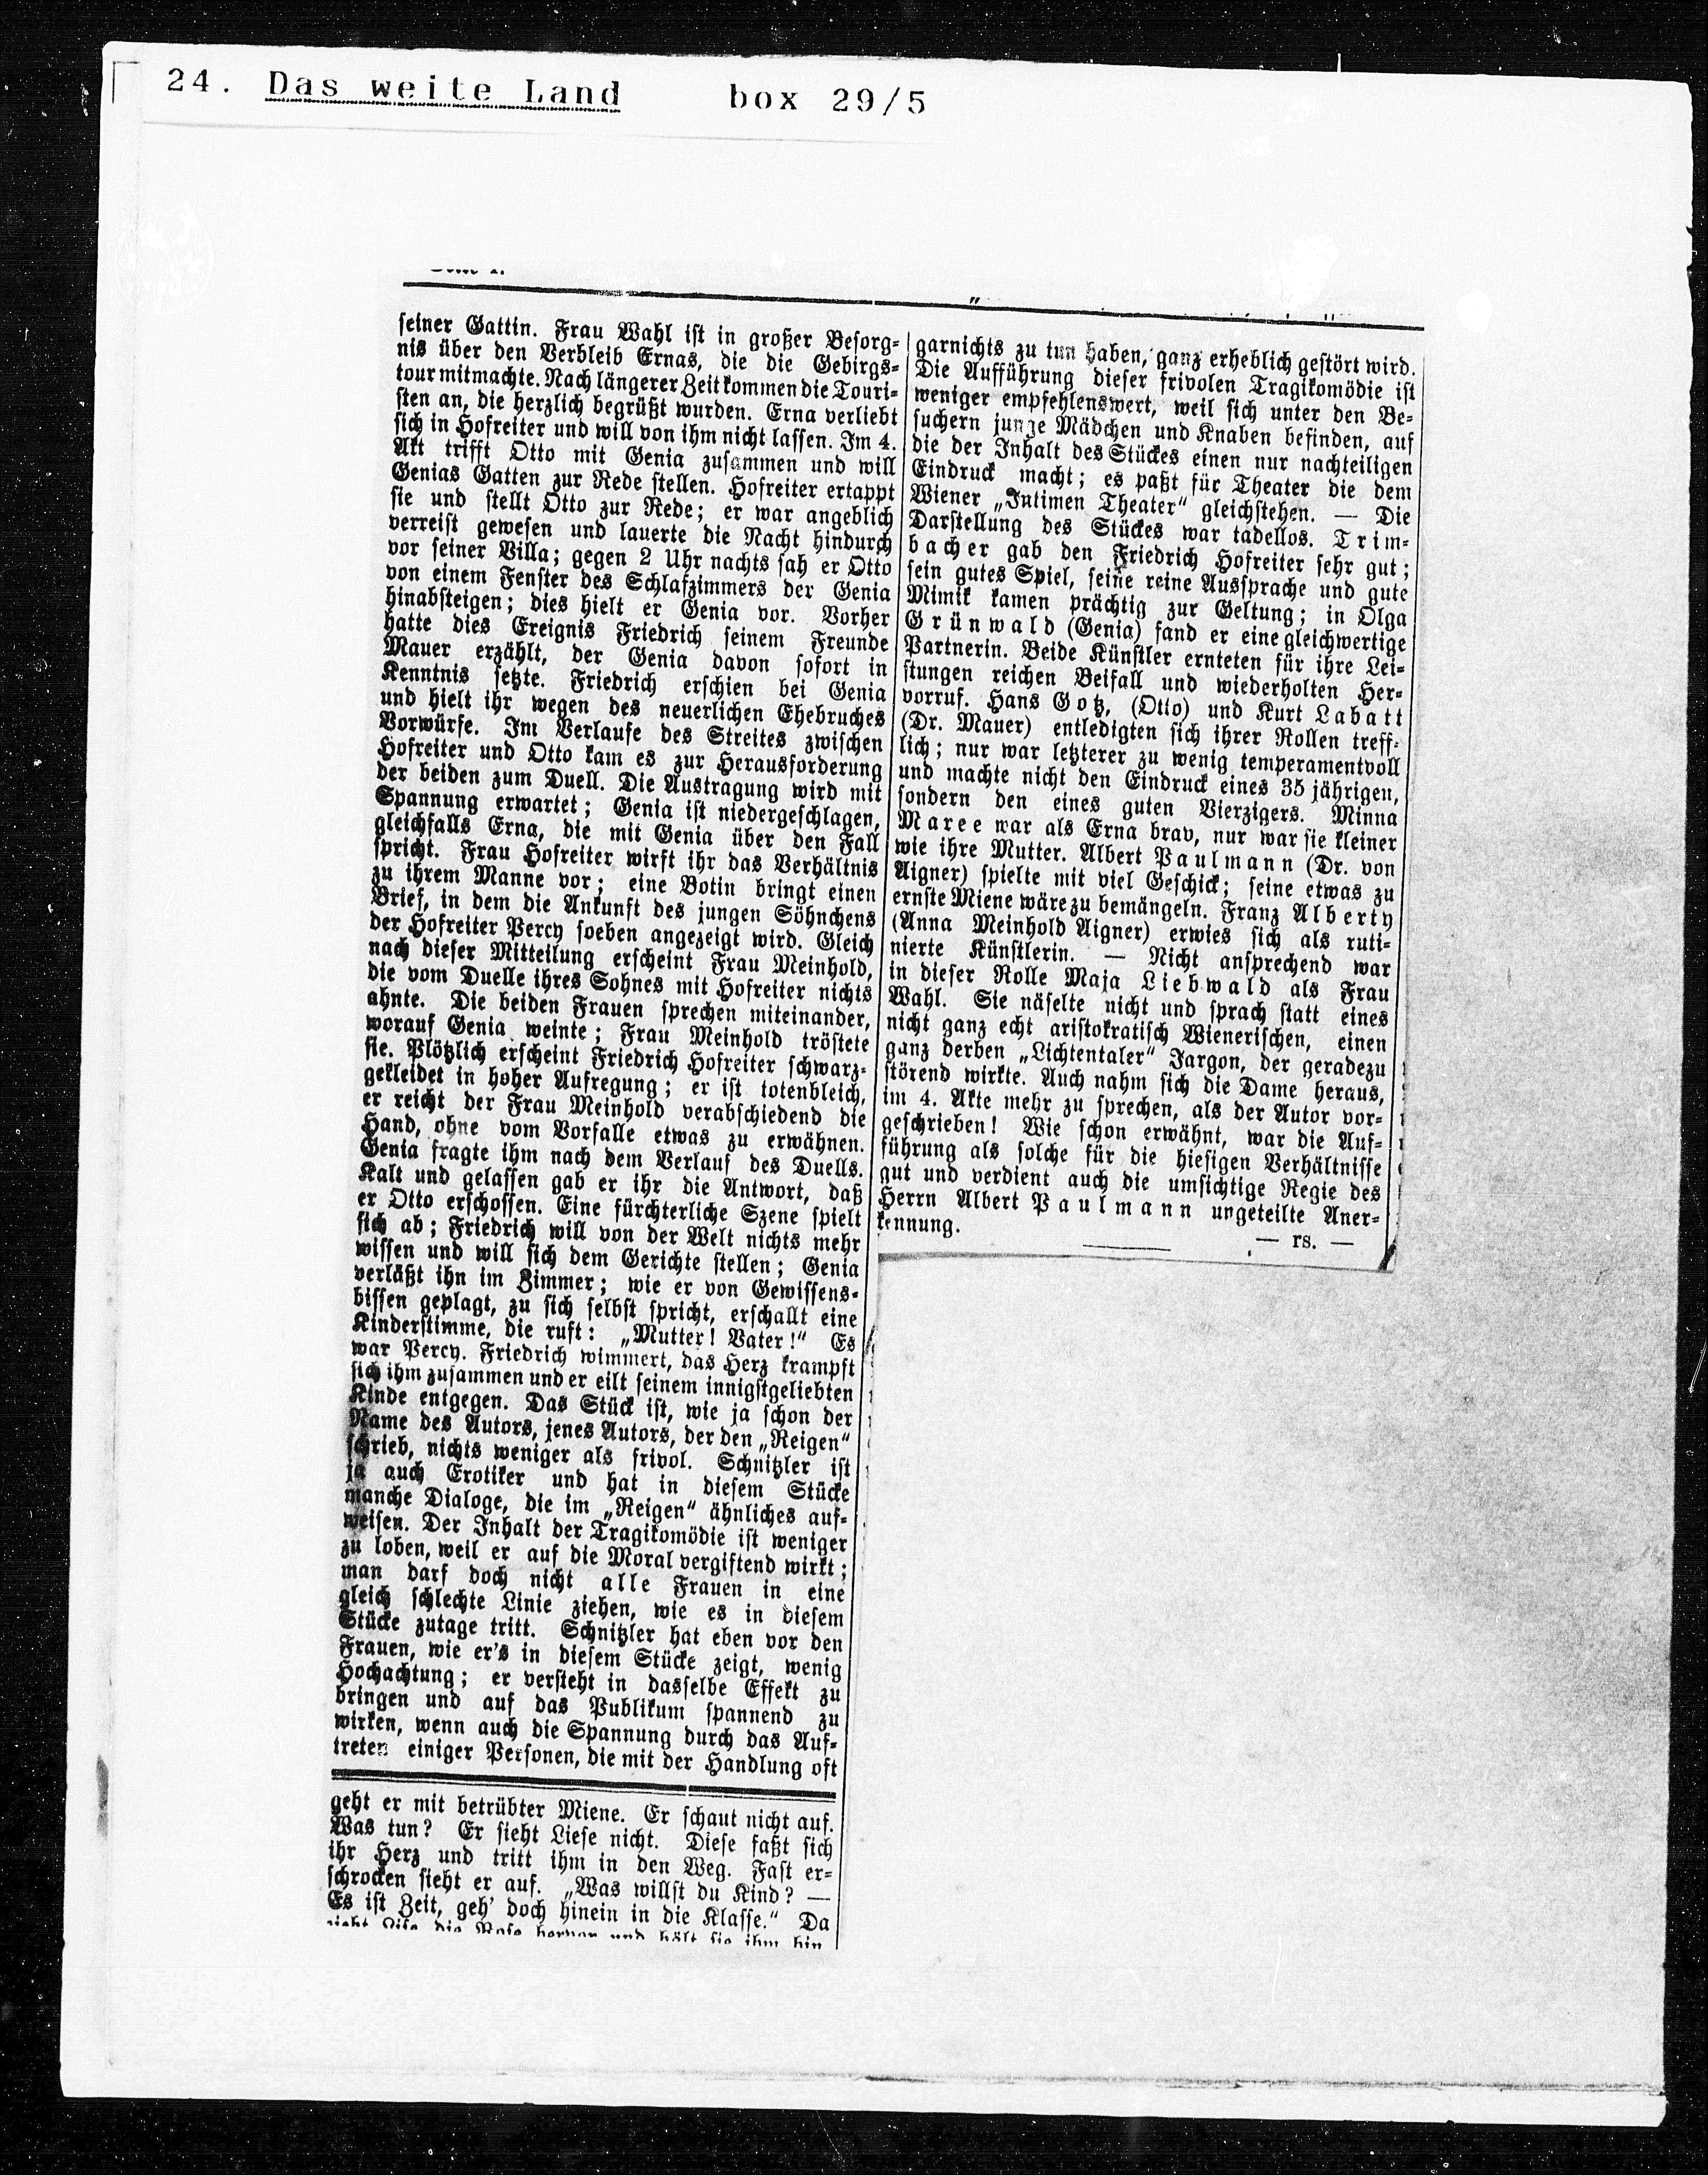 24. Das weite Land box 29/5
seiner Gattin. Frau Wahl ist in großer Besorg-
nis über den Verbleib Ernas, die die Gebirgs-
tour mitmachte. Nach längerer Zeit kommen die Touri-
sten an, die herzlich begrüßt wurden. Erna verliebt
sich in Hofreiter und will von ihm nicht lassen. Im 4.
Akt trifft Otto mit Genia zusammen und will
Genias Gatten zur Rede stellen. Hofreiter ertappt
sie und stellt Otto zur Rede; er war angeblich
verreist gewesen und lauerte die Nacht hindurch
vor seiner Villa; gegen 2 Uhr nachts sah er Otto
von einem Fenster des Schlafzimmers der Genia
hinabsteigen; dies hielt er Genia vor. Vorher
hatte dies Ereignis Friedrich seinem Freunde
Mauer erzählt, der Genia davon sofort in
Kenntnis setzte. Friedrich erschien bei Genia
und hielt ihr wegen des neuerlichen Ehebruches
Vorwürfe. Im Verlaufe des Streites zwischen
Hofreiter und Otto kam es zur Herausforderung
der beiden zum Duell. Die Austragung wird mit
Spannung erwartet; Genia ist niedergeschlagen,
gleichfalls Erna, die mit Genia über den Fall
spricht. Frau Hofreiter wirft ihr das Verhältnis
zu ihrem Manne vor; eine Botin bringt einen
Brief, in dem die Ankunft des jungen Söhnchens
der Hofreiter Percy soeben angezeigt wird. Gleich
nach dieser Mitteilung erscheint Frau Meinhold,
die vom Duelle ihres Sohnes mit Hofreiter nichts
ahnte. Die beiden Frauen sprechen miteinander,
worauf Genia weinte; Frau Meinhold tröstete
sie. Plötzlich erscheint Friedrich Hofreiter schwarz-
gekleidet in hoher Aufregung; er ist totenbleich,
er reicht der Frau Meinhold verabschiedend die
Hand, ohne vom Vorfalle etwas zu erwähnen.
Genia fragte ihm nach dem Verlauf des Duells.
Kalt und gelassen gab er ihr die Antwort, daß
er Otto erschossen. Eine fürchterliche Szene spielt
sich ab; Friedrich will von der Welt nichts mehr
wissen und will sich dem Gerichte stellen; Genia
verläßt ihn im Zimmer; wie er von Gewissens-
bissen geplagt, zu sich selbst spricht, erschallt eine
Kinderstimme, die ruft: „Mutter! Vater!“ Es
war Percy. Friedrich wimmert, das Herz krampft
sich ihm zusammen und er eilt seinem innigstgeliebten
Kinde entgegen. Das Stück ist, wie ja schon der
Name des Autors, jenes Autors, der den „Reigen“
schrieb, nichts weniger als frivol. Schnitzler ist
ja auch Erotiker und hat in diesem Stücke
manche Dialoge, die im „Reigen“ ähnliches auf-
weisen. Der Inhalt der Tragikomödie ist weniger
zu loben, weil er auf die Moral vergiftend wirkt;
man darf doch nicht alle Frauen in eine
gleich schlechte Linie ziehen, wie es in diesem
Stücke zutage tritt. Schnitzler hat eben vor den
Frauen, wie er's in diesem Stücke zeigt, wenig
Hochachtung; er versteht in dasselbe Effekt zu
bringen und auf das Publikum spannend zu
wirken, wenn auch die Spannung durch das Auf-
treten einiger Personen, die mit der Handlung oft
geht er mit betrübter Miene. Er schaut nicht auf.
Was tun? Er sieht Liese nicht. Diese faßt sich
ihr Herz und tritt ihm in den Weg. Fast er-
schrocken sieht er auf. „Was willst du Kind? —
Es ist Zeit, geh' doch hinein in die Klasse.“ Da
die Rose hervor und hält sie ihm hin
garnichts zu tun haben, ganz erheblich gestört wird.
Die Aufführung dieser frivolen Tragikomödie ist
weniger empfehlenswert, weil sich unter den Be-
suchern junge Mädchen und Knaben befinden, auf
die der Inhalt des Stückes einen nur nachteiligen
Eindruck macht; es paßt für Theater die dem
Wiener „Intimen Theater“ gleichstehen. — Die
Darstellung des Stückes war tadellos. Trim-
bacher gab den Friedrich Hofreiter sehr gut;
sein gutes Spiel, seine reine Aussprache und gute
Mimik kamen prächtig zur Geltung; in Olga
Grünwald (Genia) fand er eine gleichwertige
Partnerin. Beide Künstler ernteten für ihre Lei-
stungen reichen Beifall und wiederholten Her-
vorruf. Hans Gotz, (Otto) und Kurt Labatt
(Dr. Mauer) entledigten sich ihrer Rollen treff-
lich; nur war letzterer zu wenig temperamentvoll
und machte nicht den Eindruck eines 35 jährigen,
sondern den eines guten Vierzigers. Minna
Maree war als Erna brav, nur war sie kleiner
wie ihre Mutter. Albert Paulmann (Dr. von
Aigner) spielte mit viel Geschick; seine etwas zu
ernste Miene wäre zu bemängeln. Franz Alberty
(Anna Meinhold Aigner) erwies sich als ruti-
nierte Künstlerin. — Nicht ansprechend war
in dieser Rolle Maja Liebwald als Frau
Wahl. Sie näselte nicht und sprach statt eines
nicht ganz echt aristokratisch Wienerischen, einen
ganz derben „Lichtentaler“ Jargon, der geradezu
störend wirkte. Auch nahm sich die Dame heraus,
im 4. Akte mehr zu sprechen, als der Autor vor-
geschrieben! Wie schon erwähnt, war die Auf-
führung als solche für die hiesigen Verhältnisse
gut und verdient auch die umsichtige Regie des
Herrn Albert Paulmann ungeteilte Aner-
kennung.
— rs. —